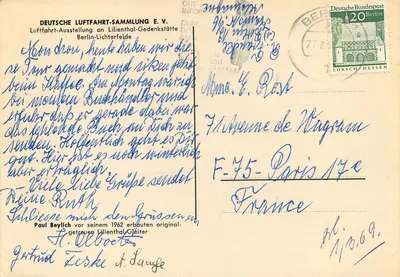 DEUTSCHE LUFTFAHRT-SAMMLUNG E. V.
Luftfahrt-Ausstellung an Lilienthal-Gedenkstätte
Berlin-Lichterfelde
heute haben wir die
se Tour gemacht und sitzen jetzt
beim Kaffee. Am Montag war ich
bei meinem Buchhändler und
erfuhr daß er gerade dabei war
das Buch an Dich zu
senden. Hoffentlich geht es Dir
gut. Hier ist es noch winterlich
aber erträglich.
– Viele liebe Grüße sendet
Deine Ruth
Schliesse mich den Grüssen an
Paul Beylich vor seinem 1962 erbauten original-
getreuen Lilienthal-Gleiter
Gertrud
Mme. E. Rost
71 Avenue de Wagram
F-75-Paris 17e
France
1/3.69.
BERLIN
Deutsche Bundespost
20 Berlin
LORSCH/HESSEN